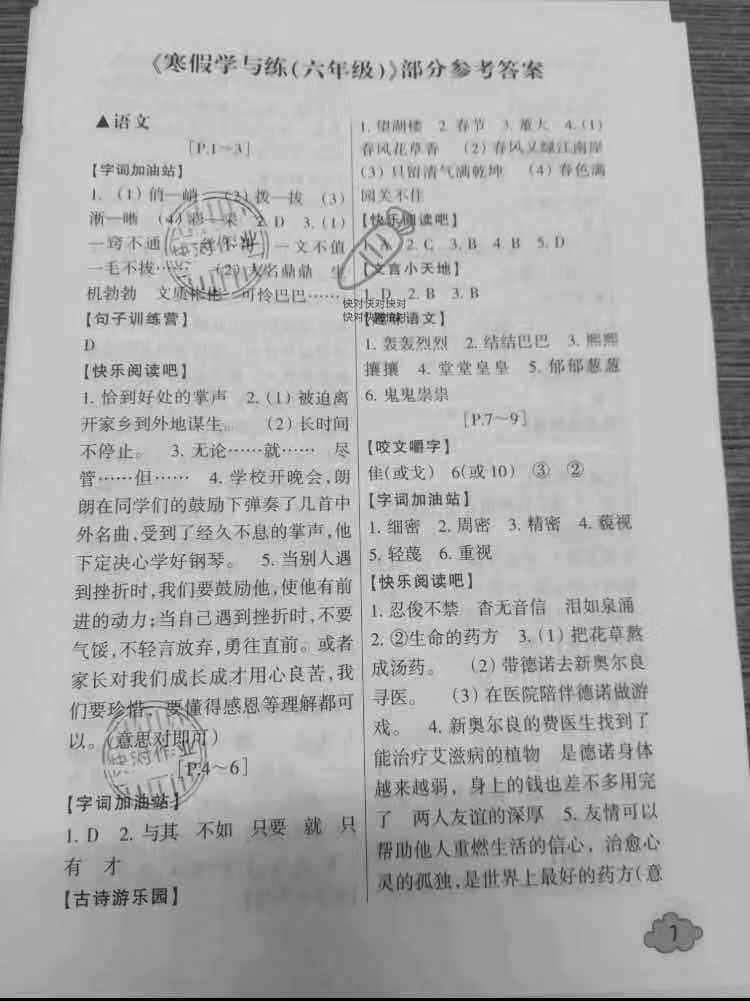 《寒假学与练(六年级)》部分参考答案
▲语文
[P.1～3]
【字词加油站】
1. (1) 俏—峭 (2) 拨—拔 (3)
渐—晰 (4) 彩—采 2. D 3. (1)
一窍不通 一丝不 一文不值
一毛不拔…… (2) 大名鼎鼎 生
机勃勃 文质彬彬 可怜巴巴……
【句子训练营】
D
【快乐阅读吧】
1. 恰到好处的掌声 2. (1) 被迫离
开家乡到外地谋生。 (2) 长时间
不停止。 3. 无论……就…… 尽
管……但…… 4. 学校开晚会,朗
朗在同学们的鼓励下弹奏了几首中
外名曲,受到了经久不息的掌声,他
下定决心学好钢琴。 5. 当别人遇
到挫折时,我们要鼓励他,使他有前
进的动力;当自己遇到挫折时,不要
气馁,不轻言放弃,勇往直前。或者
家长对我们成长成才用心良苦,我
们要珍惜,要懂得感恩等理解都可
以。(意思对即可)
[P.4～6]
【字词加油站】
1. D 2. 与其 不如 只要 就 只
有 才
【古诗游乐园】
1. 望湖楼 2. 春节 3. 董大 4. (1)
春风花草香 (2) 春风又绿江南岸
(3) 只留清气满乾坤 (4) 春色满
园关不住
【快乐阅读吧】
1. A 2. C 3. B 4. B 5. D
【文言小天地】
1. D 2. B 3. D
【趣味语文】
1. 轰轰烈烈 2. 结结巴巴 3. 熙熙
攘攘 4. 堂堂皇皇 5. 郁郁葱葱
6. 鬼鬼祟祟
[P.7～9]
【咬文嚼字】
佳(或戈) 6(或10) ③ ②
【字词加油站】
1. 细密 2. 周密 3. 精密 4. 藐视
5. 轻蔑 6. 重视
【快乐阅读吧】
1. 忍俊不禁 杳无音信 泪如泉涌
2. ②生命的药方 3. (1) 把花草熬
成汤药。 (2) 带德诺去新奥尔良
寻医。 (3) 在医院陪伴德诺做游
戏。 4. 新奥尔良的费医生找到了
能治疗艾滋病的植物 是德诺身体
越来越弱，身上的钱也差不多用完
了 两人友谊的深厚 5. 友情可以
帮助他人重燃生活的信心，治愈心
灵的孤独,是世界上最好的药方(意
1
快对作业
快对作业
快对快对快对
快对快对快对